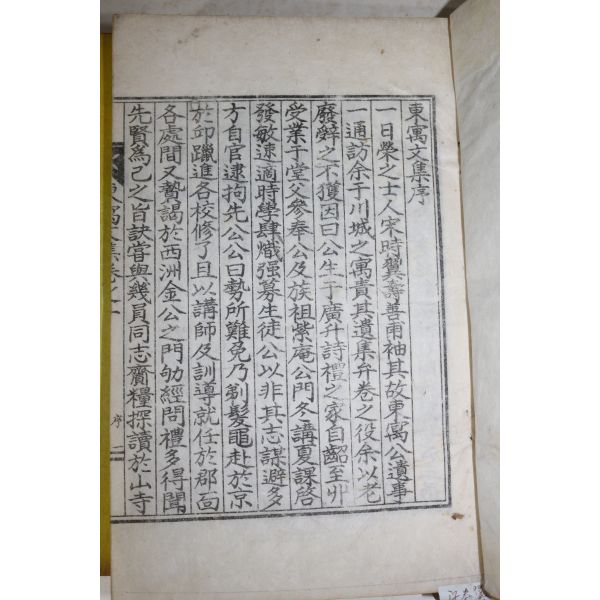 東寓文集序
一日榮之士人宋時爨壽善甫袖其故東寓公遺事
一通訪余于川城之寓責其遺集弁卷之役余以老
廢辭之不獲因曰公生于廣升詩禮之家自齠至丱
受業于堂父參奉公及族祖紫庵公門冬講夏課啓
發敏速適時學肆熾强募生徒公以非其志謀避多
方自官逮拘先公公曰勢所難免乃剃髮黽赴於京
於卬躐進各校修了且以講師及訓導就任於郡面
各處間又贄謁於西洲金公之門劬經問禮多得聞
先賢爲己之旨訣嘗與幾員同志齎糧探讀於山寺
東寓文集卷之一
序
二